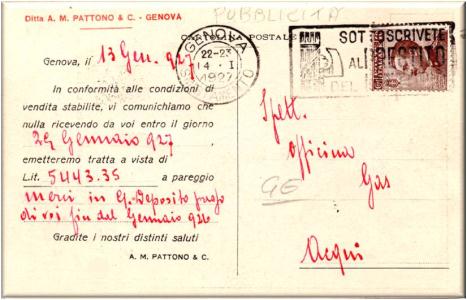 Ditta A. M. PATTONO & C. - GENOVA
PUBBLICITÀ
CARTOLINA POSTALE
GENOVA
22-23
14 · I
1927
SOTTOSCRIVETE
AL PRESTITO
DEL
Genova, il 13 Gen. 927
In conformità alle condizioni di
vendita stabilite, vi comunichiamo che
nulla ricevendo da voi entro il giorno
29 Gennaio 927
emetteremo tratta a vista di
Lit. 5443.35 a pareggio
merci in G. Deposito pago
di voi fin dal Gennaio 926
Gradite i nostri distinti saluti
A. M. PATTONO & C.
Spett.
Officina
Gas
GE
Acqui